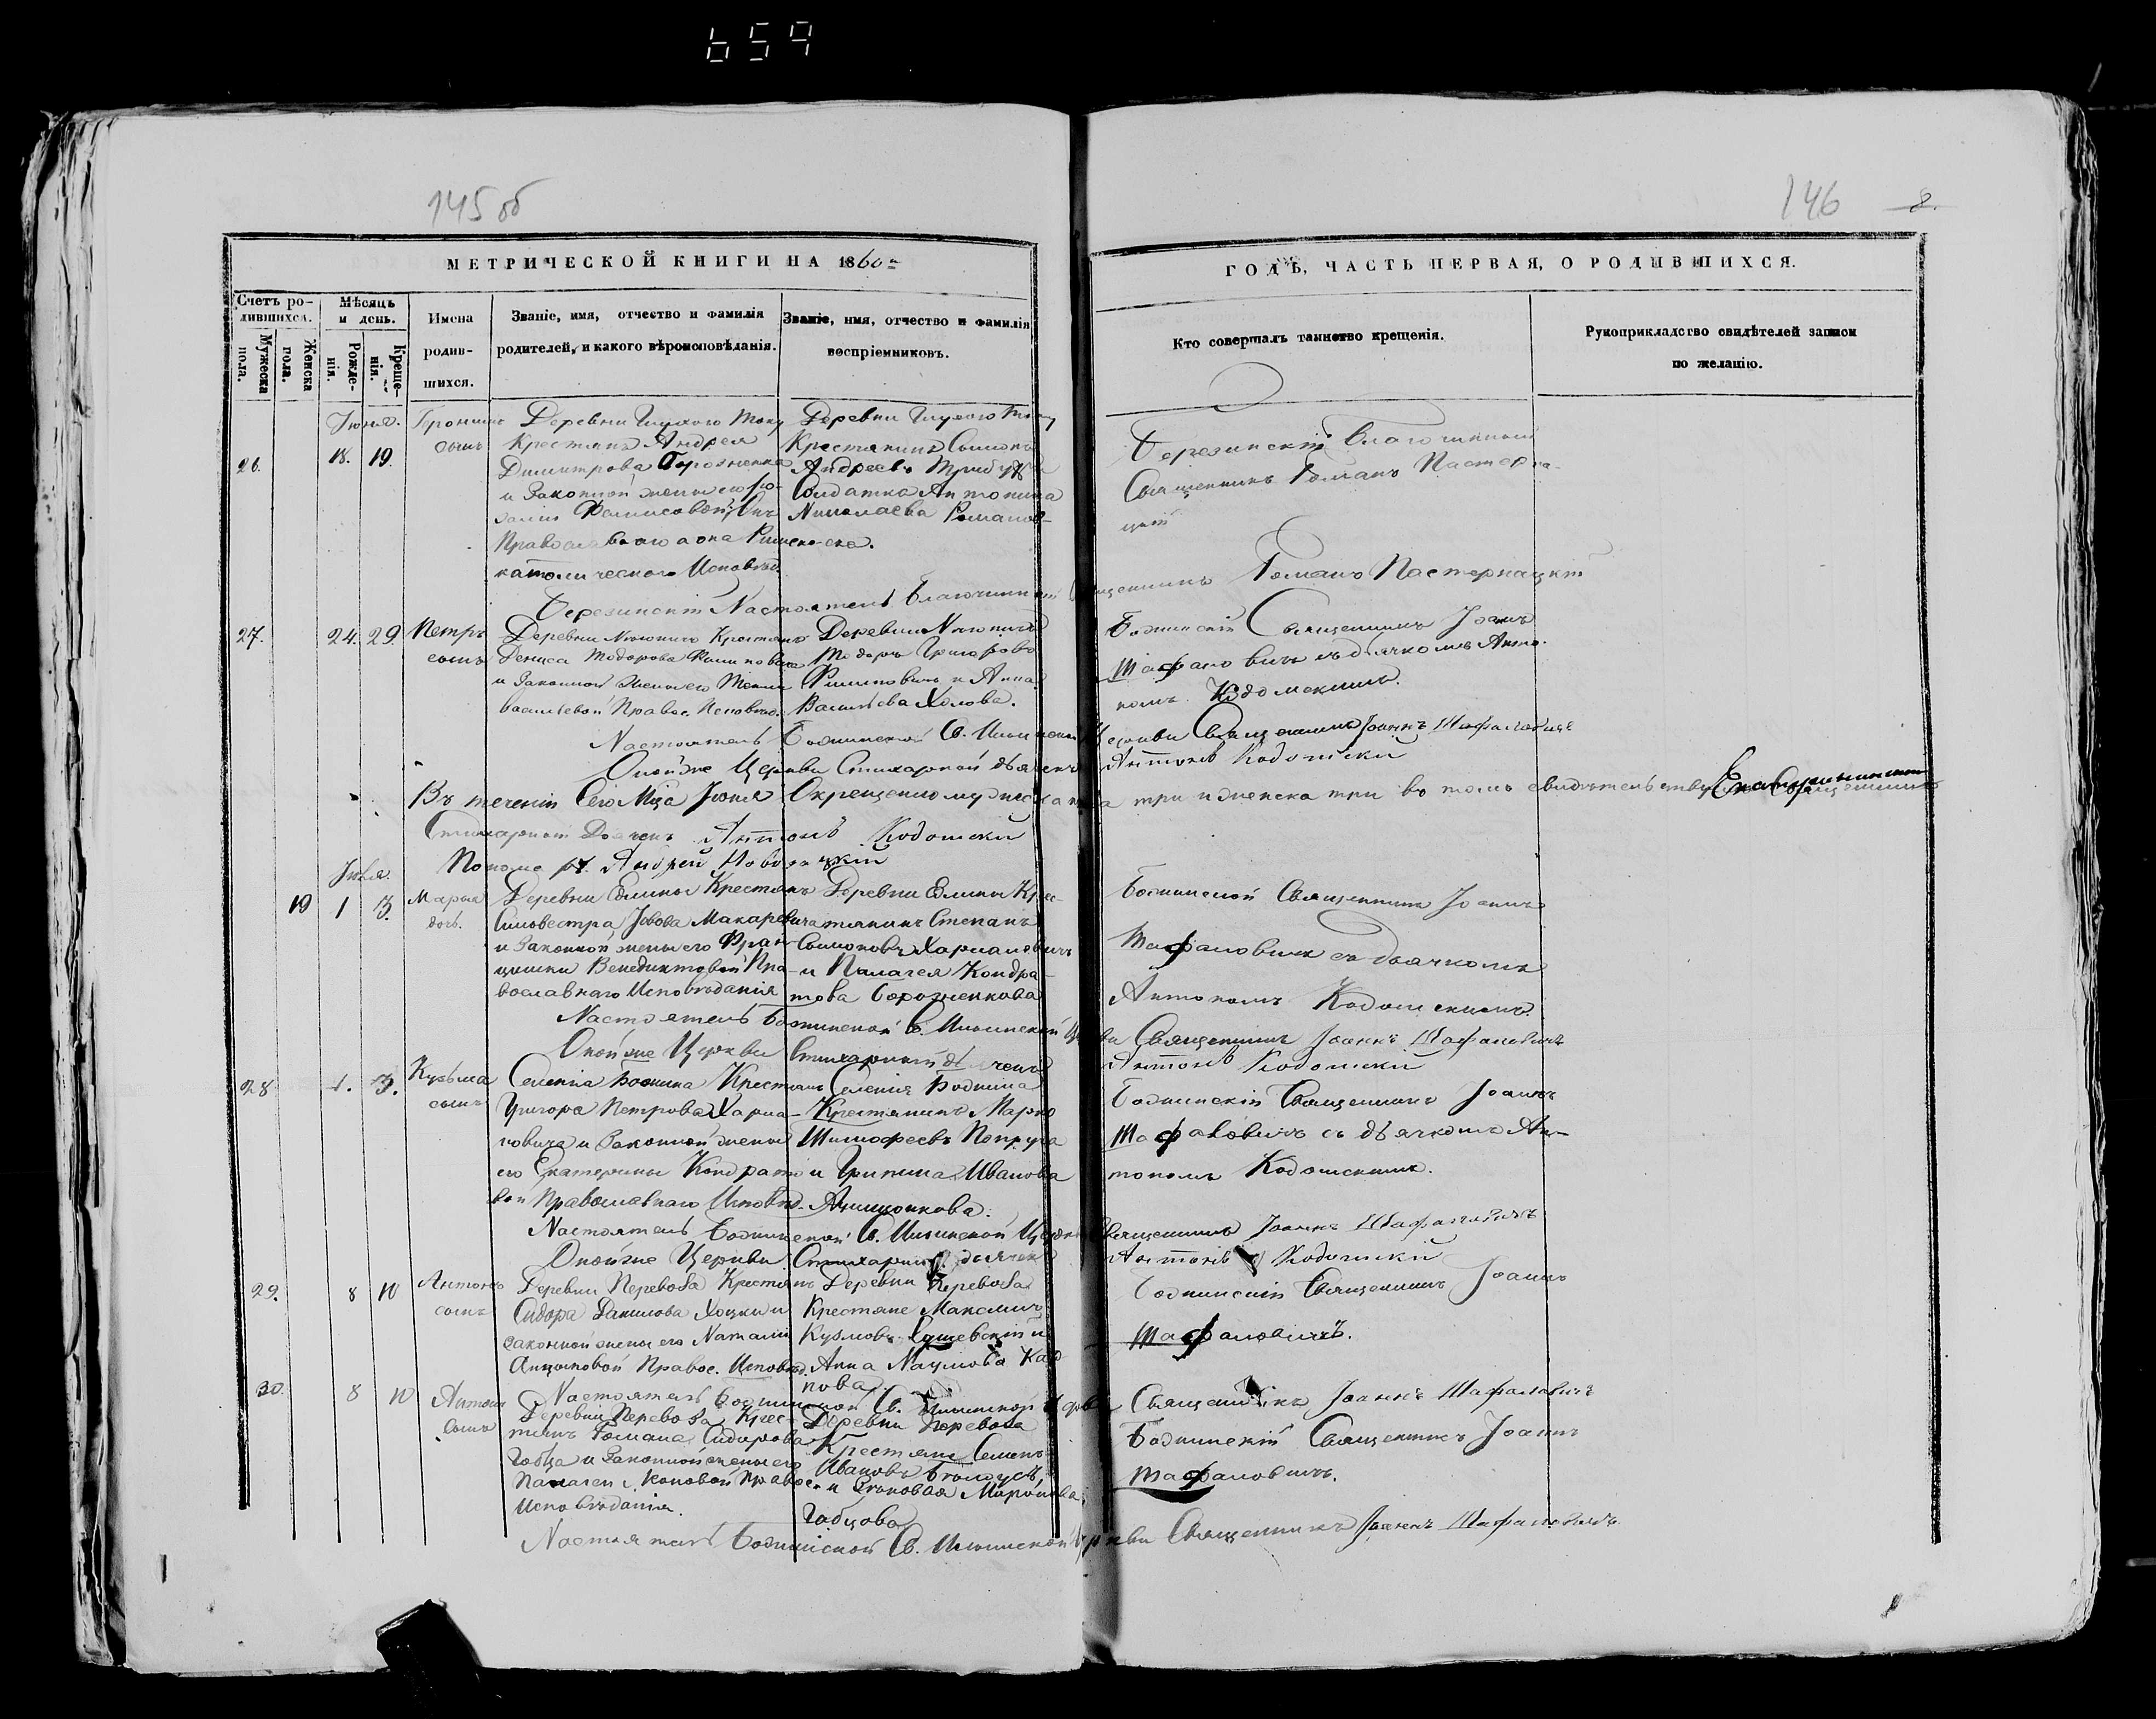 659
145 об
146 8.
МЕТРИЧЕСКОЙ КНИГИ НА 1860й
ГОДЪ, ЧАСТЬ ПЕРВАЯ, О РОДИВШИХСЯ.
Счетъ ро-
дившихся.
Мужеска
пола.
Женска
пола.
Мѣсяцъ
и день.
Рожде-
нія.
Креще-
нія.
Имена
родив-
шихся.
Званіе, имя, отчество и фамилія
родителей, и какого вѣроисповѣданія.
Званіе, имя, отчество и фамилія
воспріемниковъ.
Кто совершалъ таинство крещенія.
Рукоприкладство свидѣтелей записи
по желанію.
Іюня.
26. 18. 19.
сынъ
Деревни
Крестьянъ Андрея
Димитрова
и Законной жены его Ро-
заліи
Православнаго а она Римско-
католическаго Исповѣд.
Деревни
Крестьянинъ
Андреевъ
Солдатка Антонина
Николаева Романов-
ска.
Березинскій Благочинный
Священникъ Романъ Пастерна-
цкій
Березинскій Настоятель Благочинный Священникъ Романъ Пастернацкій
27. 24. 29. Петръ
сынъ
Деревни Крестьянъ
Дениса Тодорова
и Законной жены его Теклы
Васильевой Правос. Исповѣд.
Деревни
Тодоръ Григорьевъ
и Анна
Васильева Холова.
Божинскій Священникъ Іоаннъ
Шафаловичъ съ дьячкомъ Анто-
номъ
Настоятель Божинской Св. Ильинской Церкви Священникъ Іоаннъ Шафаловичъ
Оной же Церкви Стихарный дьячекъ Антонъ
Въ теченіи Сего Мца Іюня Окрещенно мужеска пола три и женска три въ томъ свидѣтельствуемъ Священникъ
Стихарный Дьячекъ Антонъ
Пономарь Андрей Новозацкій
Іюля.
19 1 3. Марья
дочь.
Деревни Селины Крестьянъ
Сильвестра Іовова Макаревича
и Законной жены его Фран-
цишки Венедиктовой Пра-
вославнаго Исповѣданія
Деревни Селины Крес-
тьянинъ Степанъ
Симоновъ
и Палагея Кондра-
това
Божинской Священникъ Іоаннъ
Шафаловичъ съ дьячкомъ
Антономъ
Настоятель Божинской Св. Ильинской Церкви Священникъ Іоаннъ Шафаловичъ
Оной же Церкви Стихарный дьячекъ Антонъ
28 1. 3. Кузьма
сынъ
Селенія Божина Крестьянъ
Григора Петрова
и Законной жены
его Екатерины Кондрато-
вой Православнаго Исповѣд.
Селенія Божина
Крестьянинъ Марко
Тимофеевъ Попруга
и Грипина Иванова
Божинскій Священникъ Іоаннъ
Шафаловичъ съ дьячкомъ Ан-
тономъ
Настоятель Божинской Св. Ильинской Церкви Священникъ Іоаннъ Шафаловичъ
Оной же Церкви Стихарный дьячекъ Антонъ
29. 8 10 Антонъ
сынъ
Деревни Перевоза Крестьянъ
Сидора Данилова Хоцки и
законной жены его Наталіи
Правос. Исповѣд.
Деревни Перевоза
Крестьяне Максимъ
Кузмовъ и
Анна Наумова
Божинскій Священникъ Іоаннъ
Шафаловичъ.
Настоятель Божинской Св. Ильинской Церкви Священникъ Іоаннъ Шафаловичъ
30. 8 10 Антонъ
сынъ
Деревни Перевоза Крес-
тьянъ Романа Сидорова
и Законной жены его
Палагеи Правос.
Исповѣданія.
Деревни Перевоза
Крестьяне Семенъ
Ивановъ
и Миронова
Гобцова
Божинскій Священникъ Іоаннъ
Шафаловичъ.
Настоятель Божинской Св. Ильинской Церкви Священникъ Іоаннъ Шафаловичъ